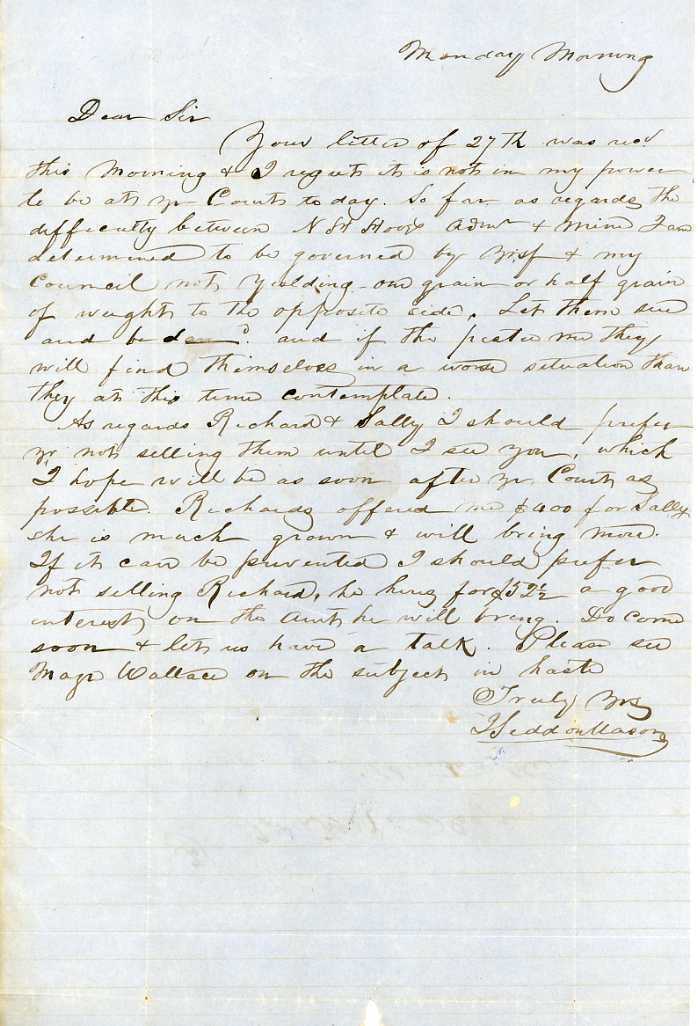 Monday Morning
Dear Sir
Your letter of 27th was recd
this Morning & I regret it is not in my power
to be at yr Court to day. So far as regards the
difficulty between N H Hooe's Admr & mine I am
determined to be governed by yrself & my
Council not yielding one grain or half grain
of weight to the opposite side. Let them sue
and be and if the pester me they
will find themselves in a worse situation than
they at this time contemplate.
As regards Richard & Sally I should prefer
yr not selling them until I see you, which
I hope will be as soon after yr Court as
possible. Richards offered me $400 for Sally
she is much grown & will bring more.
If it can be prevented I should prefer
not selling Richard, he hires for $52½ a good
interest on the Amt he will bring. Do come
soon & let us have a talk. Please see
Majr Wallace on the subject in haste
Truly Yrs
J Seddon Mason